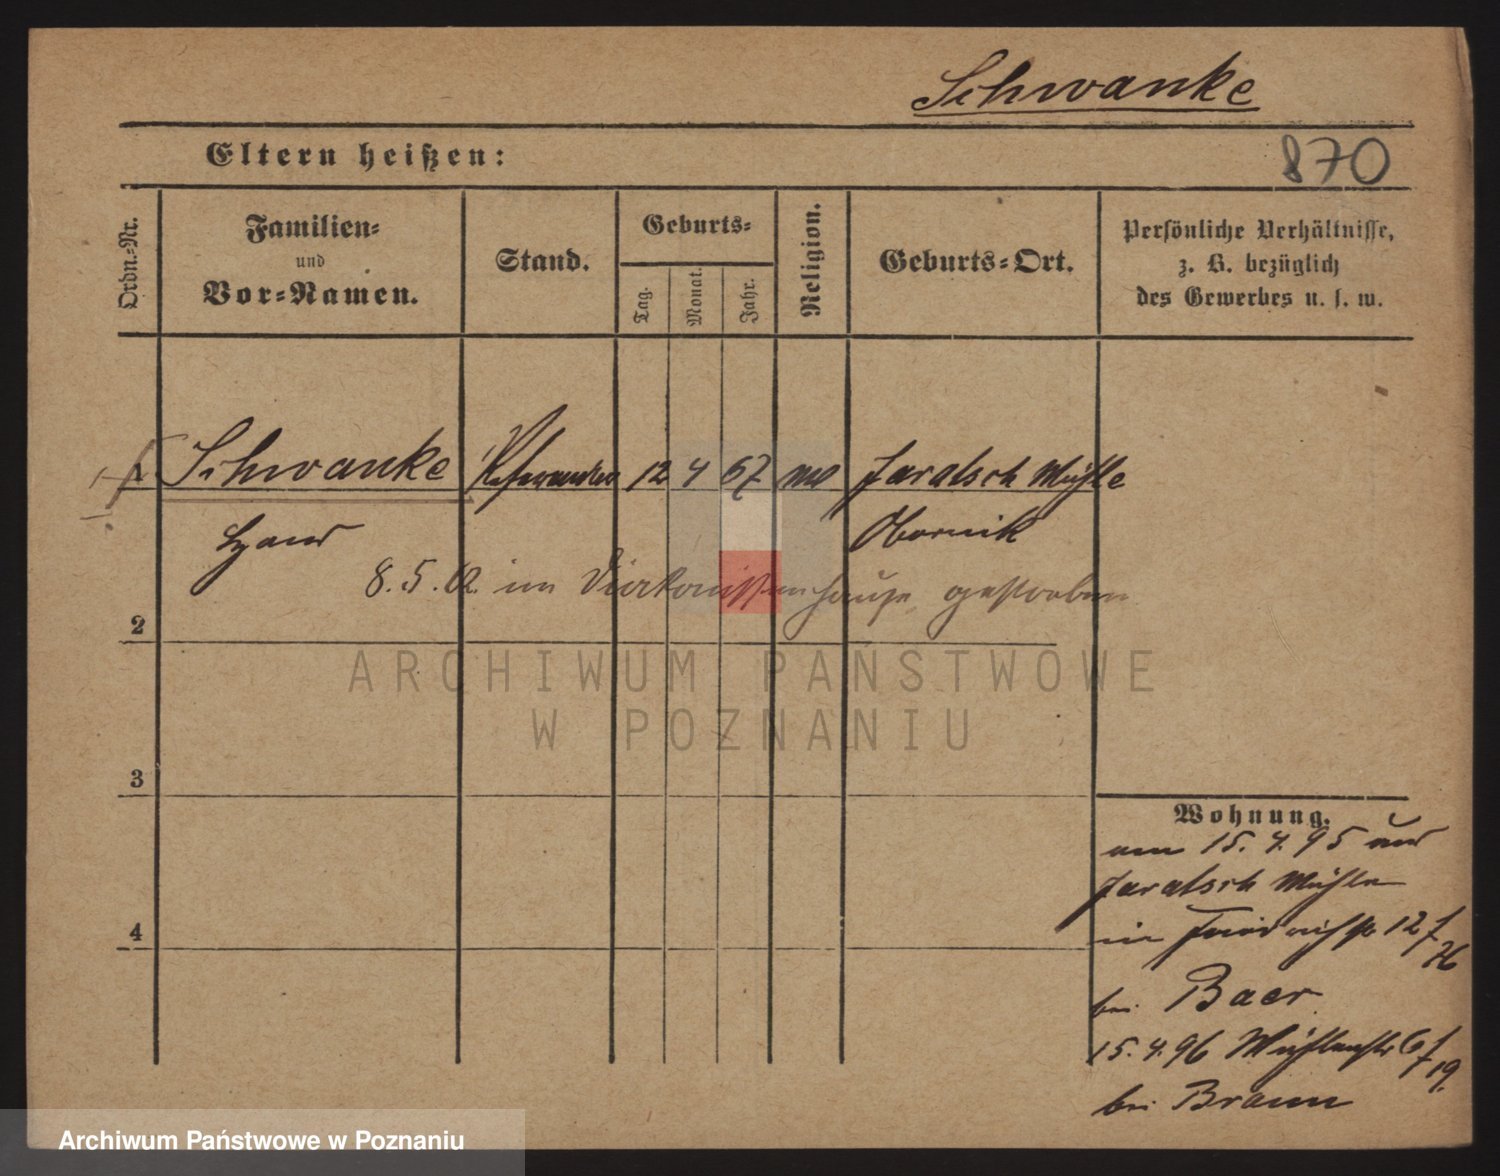 Schwanke
Eltern heißen:
870
Ordn.-Nr.
Familien-
und
Vor-Namen.
Stand.
Geburts-
Tag.
Monat.
Jahr.
Religion.
Geburts-Ort.
Persönliche Verhältnisse,
z. B. bezüglich
des Gewerbes u. s. w.
1 Schwanke Referendar 12 4 67 Jaratsch Mühle
Obornik
8.5.02. im Diakonissenhause gestorben
2
ARCHIWUM PAŃSTWOWE
W POZNANIU
3
Wohnung.
am 15.4.95 aus
Jaratsch Mühle
in Friedrichstr 12/76
bei Baer
15.4.96 Mühlenstr 6/19.
bei Braun
4
Archiwum Państwowe w Poznaniu